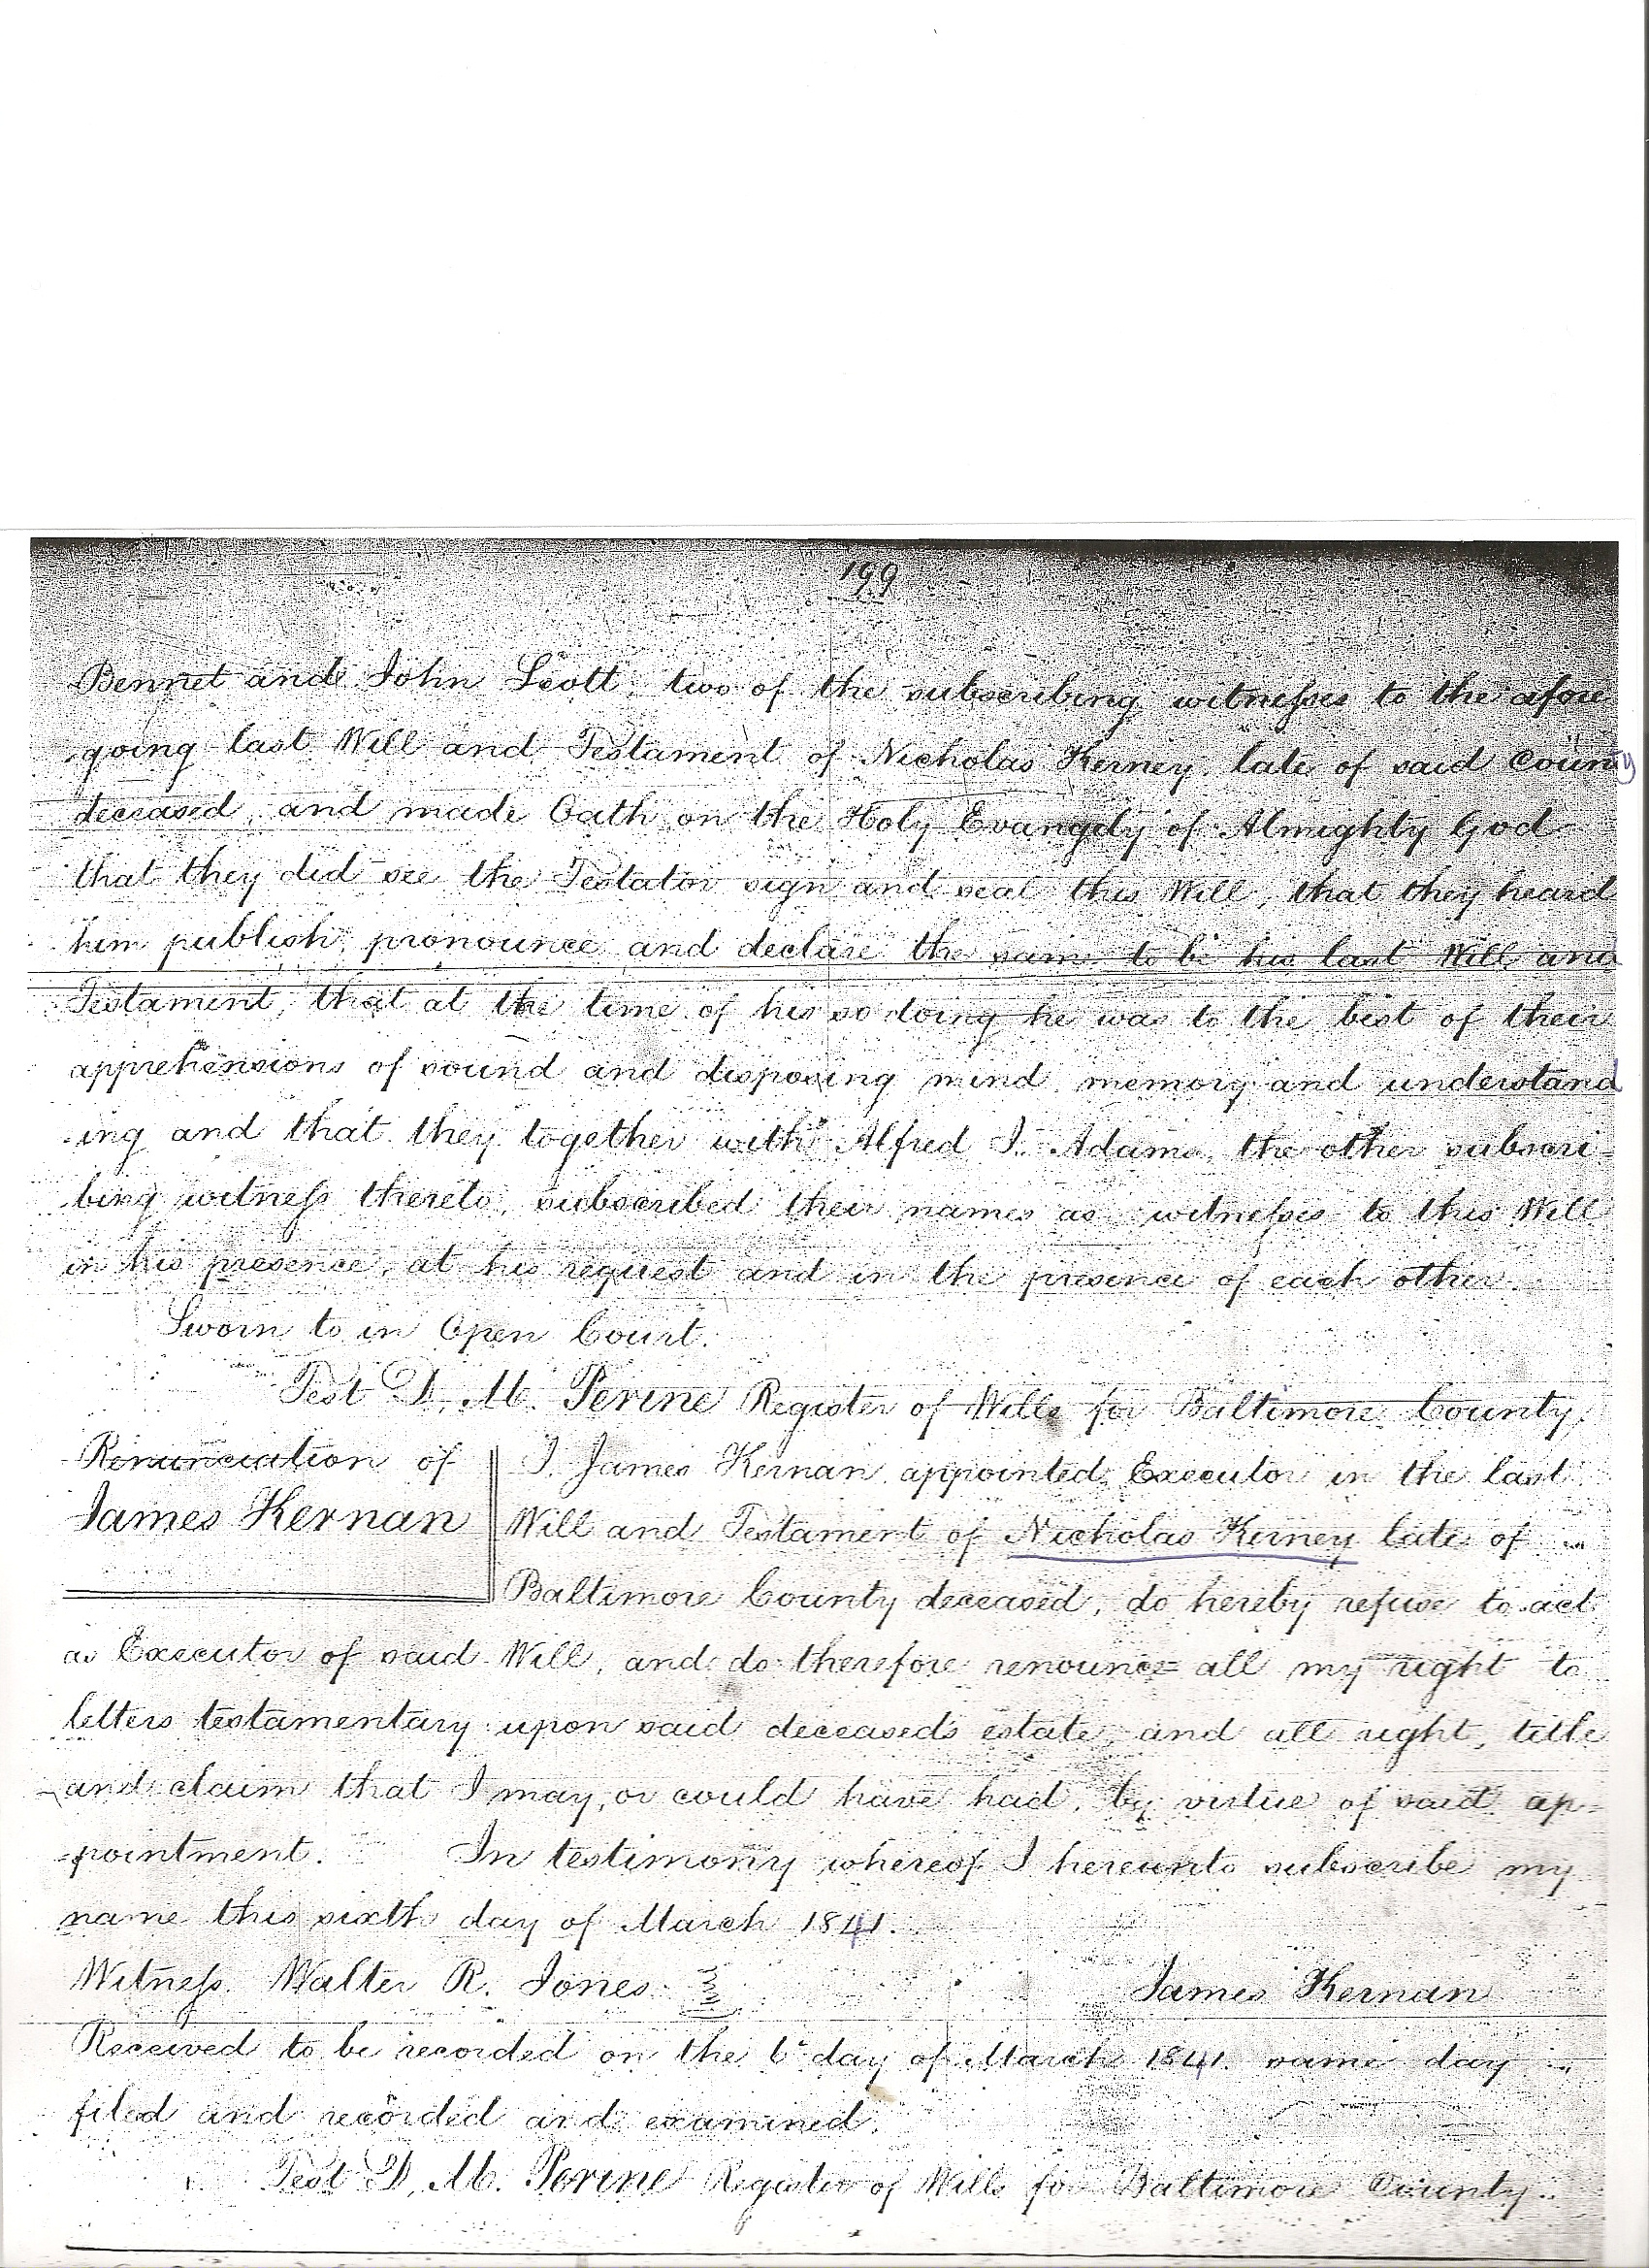 199
Bennet and John Scott, two of the subscribing witnesses to the afore
going last Will and Testament of Nicholas Kerney late of said County
deceased, and made Oath on the Holy Evangely of Almighty God
that they did see the Testator sign and seal this Will, that they heard
him publish, pronounce and declare the same to be his last Will and
Testament, that at the time of his so doing he was to the best of their
apprehensions of sound and disposing mind memory and understand
ing and that they together with Alfred I. Adams the other subscri-
bing witness thereto, subscribed their names as witnesses to this Will
in his presence, at his request and in the presence of each other.
Sworn to in Open Court.
Test D. M. Perine Register of Wills for Baltimore County,
Renunciation of
James Kernan
I, James Kernan appointed Executor in the last
Will and Testament of Nicholas Kerney late of
Baltimore County deceased, do hereby refuse to act
as Executor of said Will, and do therefore renounce all my right to
letters testamentary upon said deceased's estate, and all right, title
and claim that I may, or could have had, by virtue of said ap=
pointment. In testimony whereof I hereunto subscribe my
name this sixth day of March 1841.
Witness. Walter R. Jones
James Kernan
Received to be recorded on the 6 day of March 1841. same day
filed and recorded and examined.
Test D. M. Perine Register of Wills for Baltimore County.